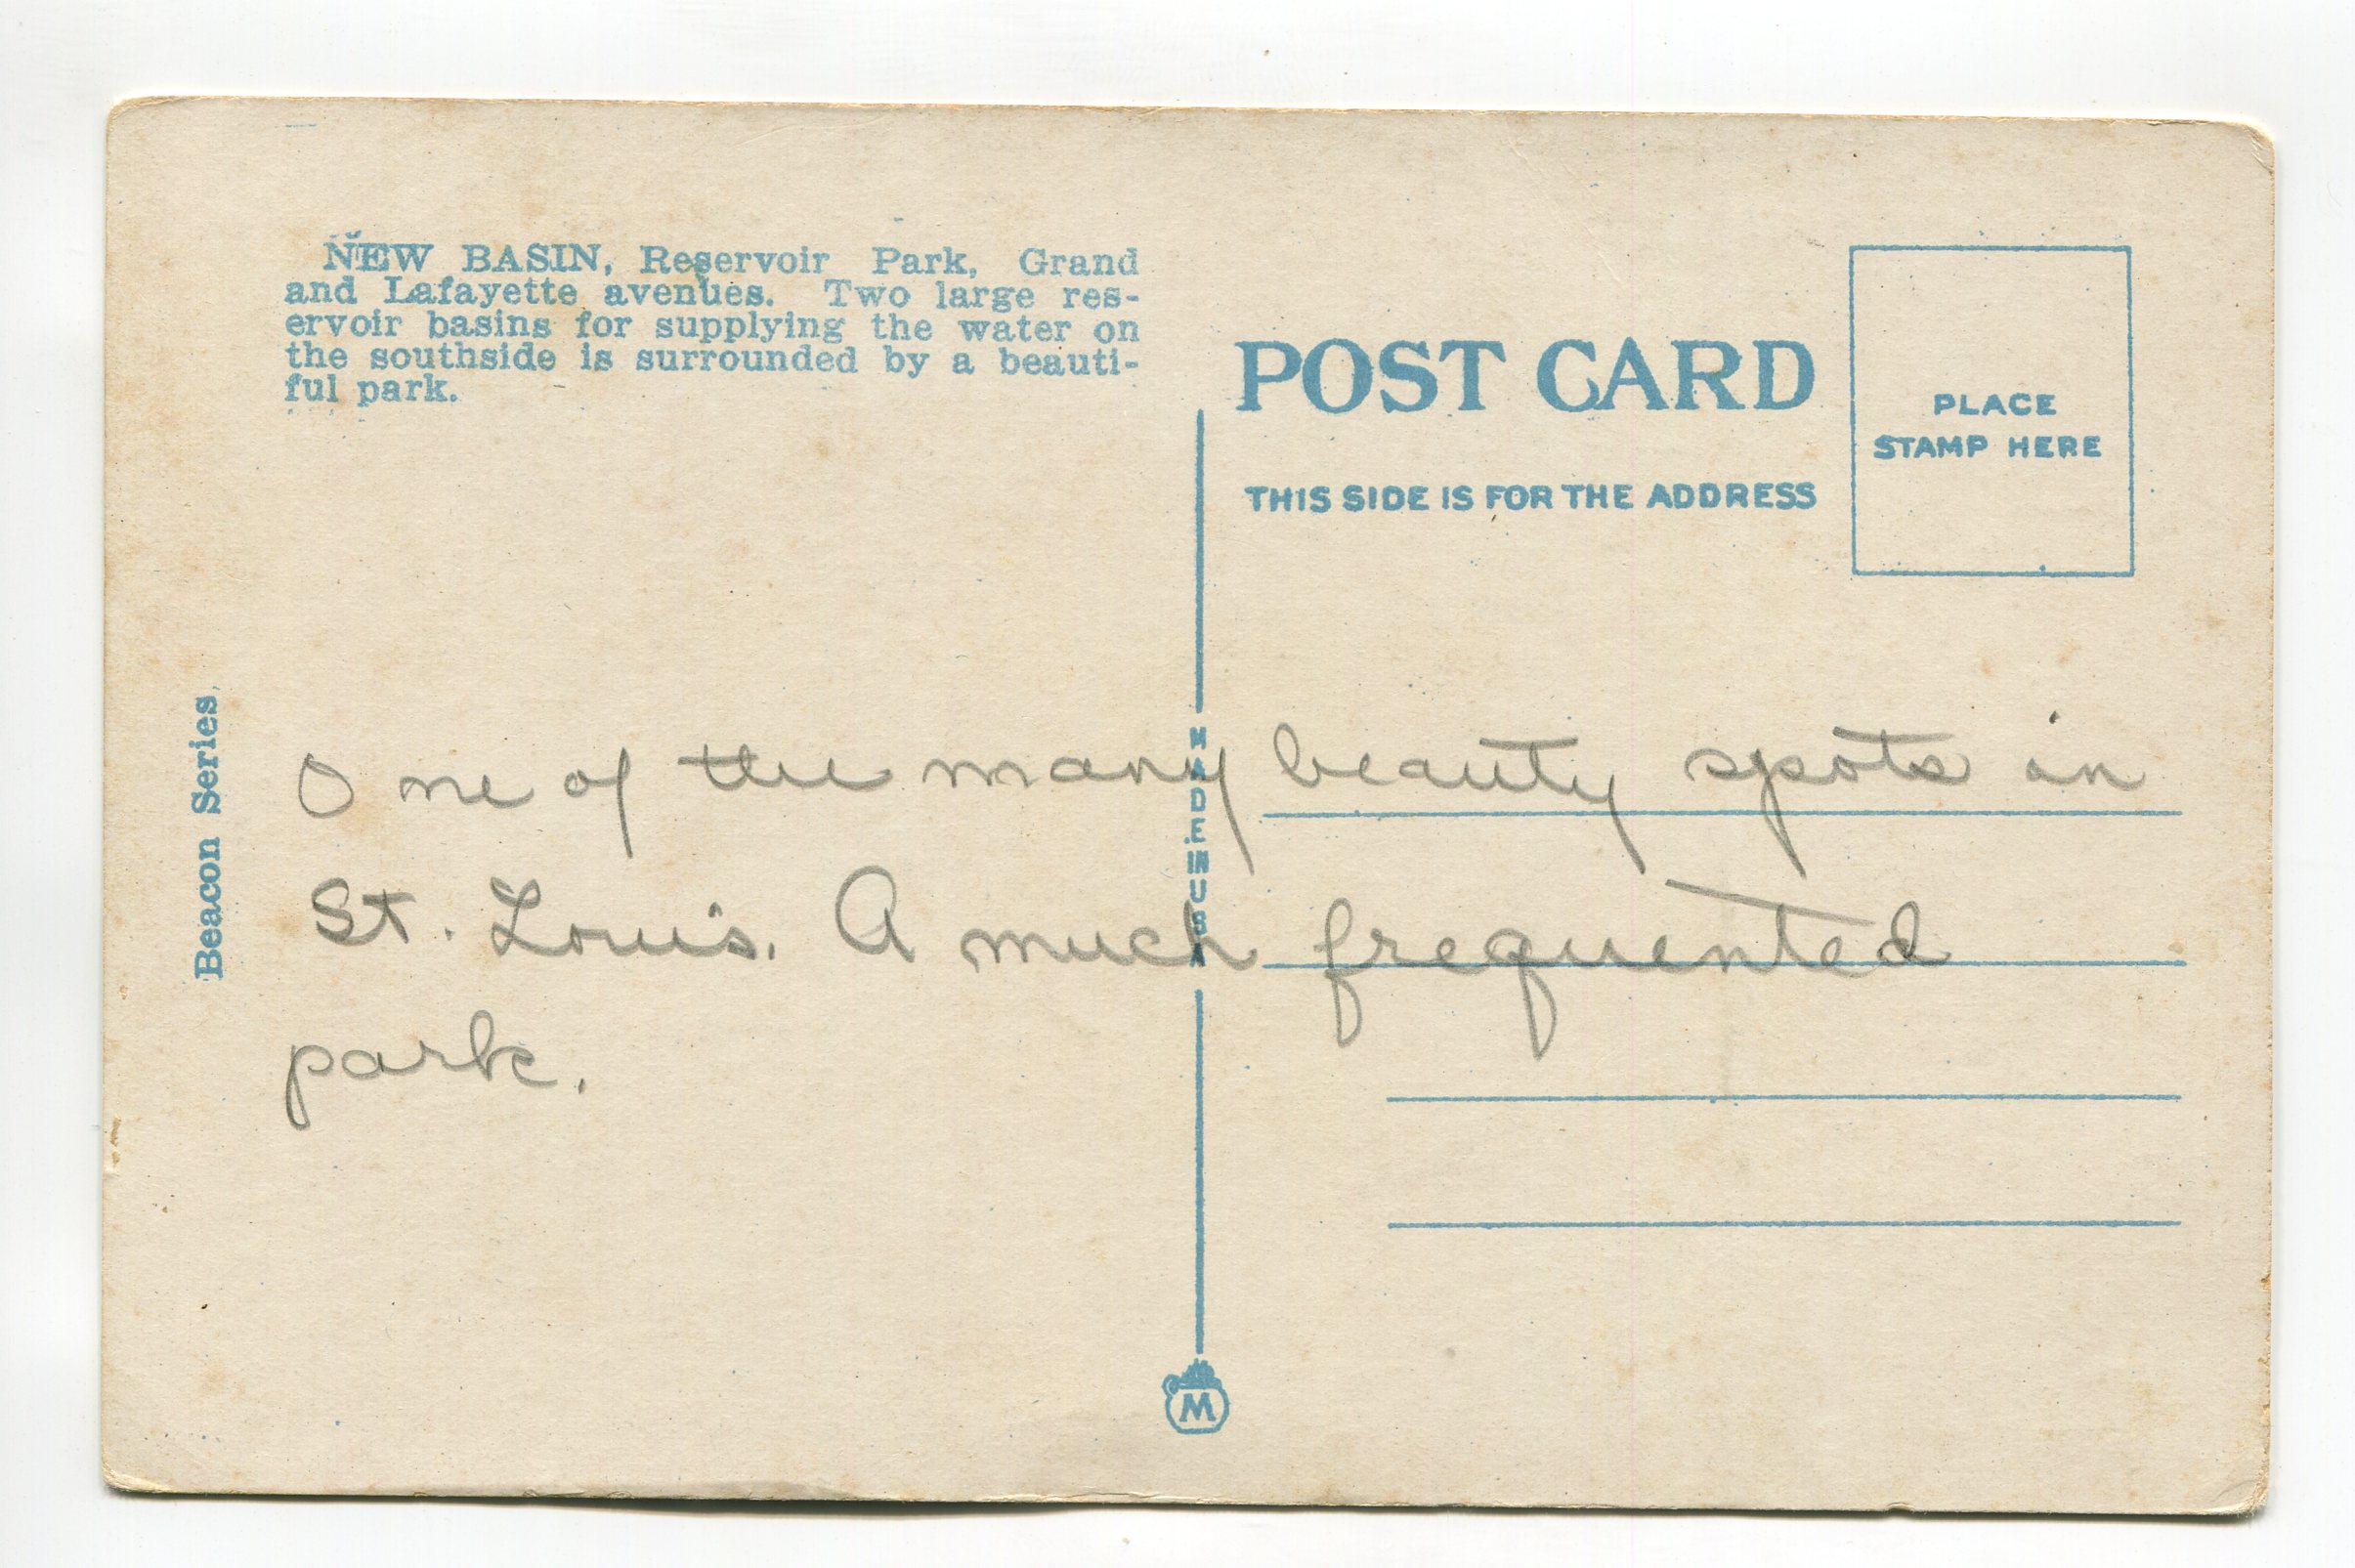 NEW BASIN, Reservoir Park, Grand
and Lafayette avenues. Two large res-
ervoir basins for supplying the water on
the southside is surrounded by a beauti-
ful park.
POST CARD
THIS SIDE IS FOR THE ADDRESS
PLACE
STAMP HERE
Beacon Series,
MADE IN USA
One of the many beauty spots in
St. Louis. A much frequented
park.
M